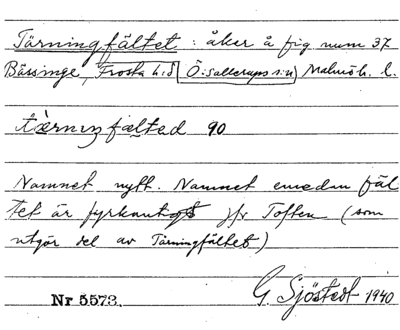 Tärningfältet : åker å fig num 37
Bässinge, Frosta h:d [Ö: Sallerups s:n] Malmöh. l.
tæ̀rnɪŋfæltəd 90
Namnet nytt. Namnet emedan fäl-
tet är fyrkantigt jfr Toften (som
utgör del av Tärningfältet)
Nr 5573. G. Sjöstedt 1940